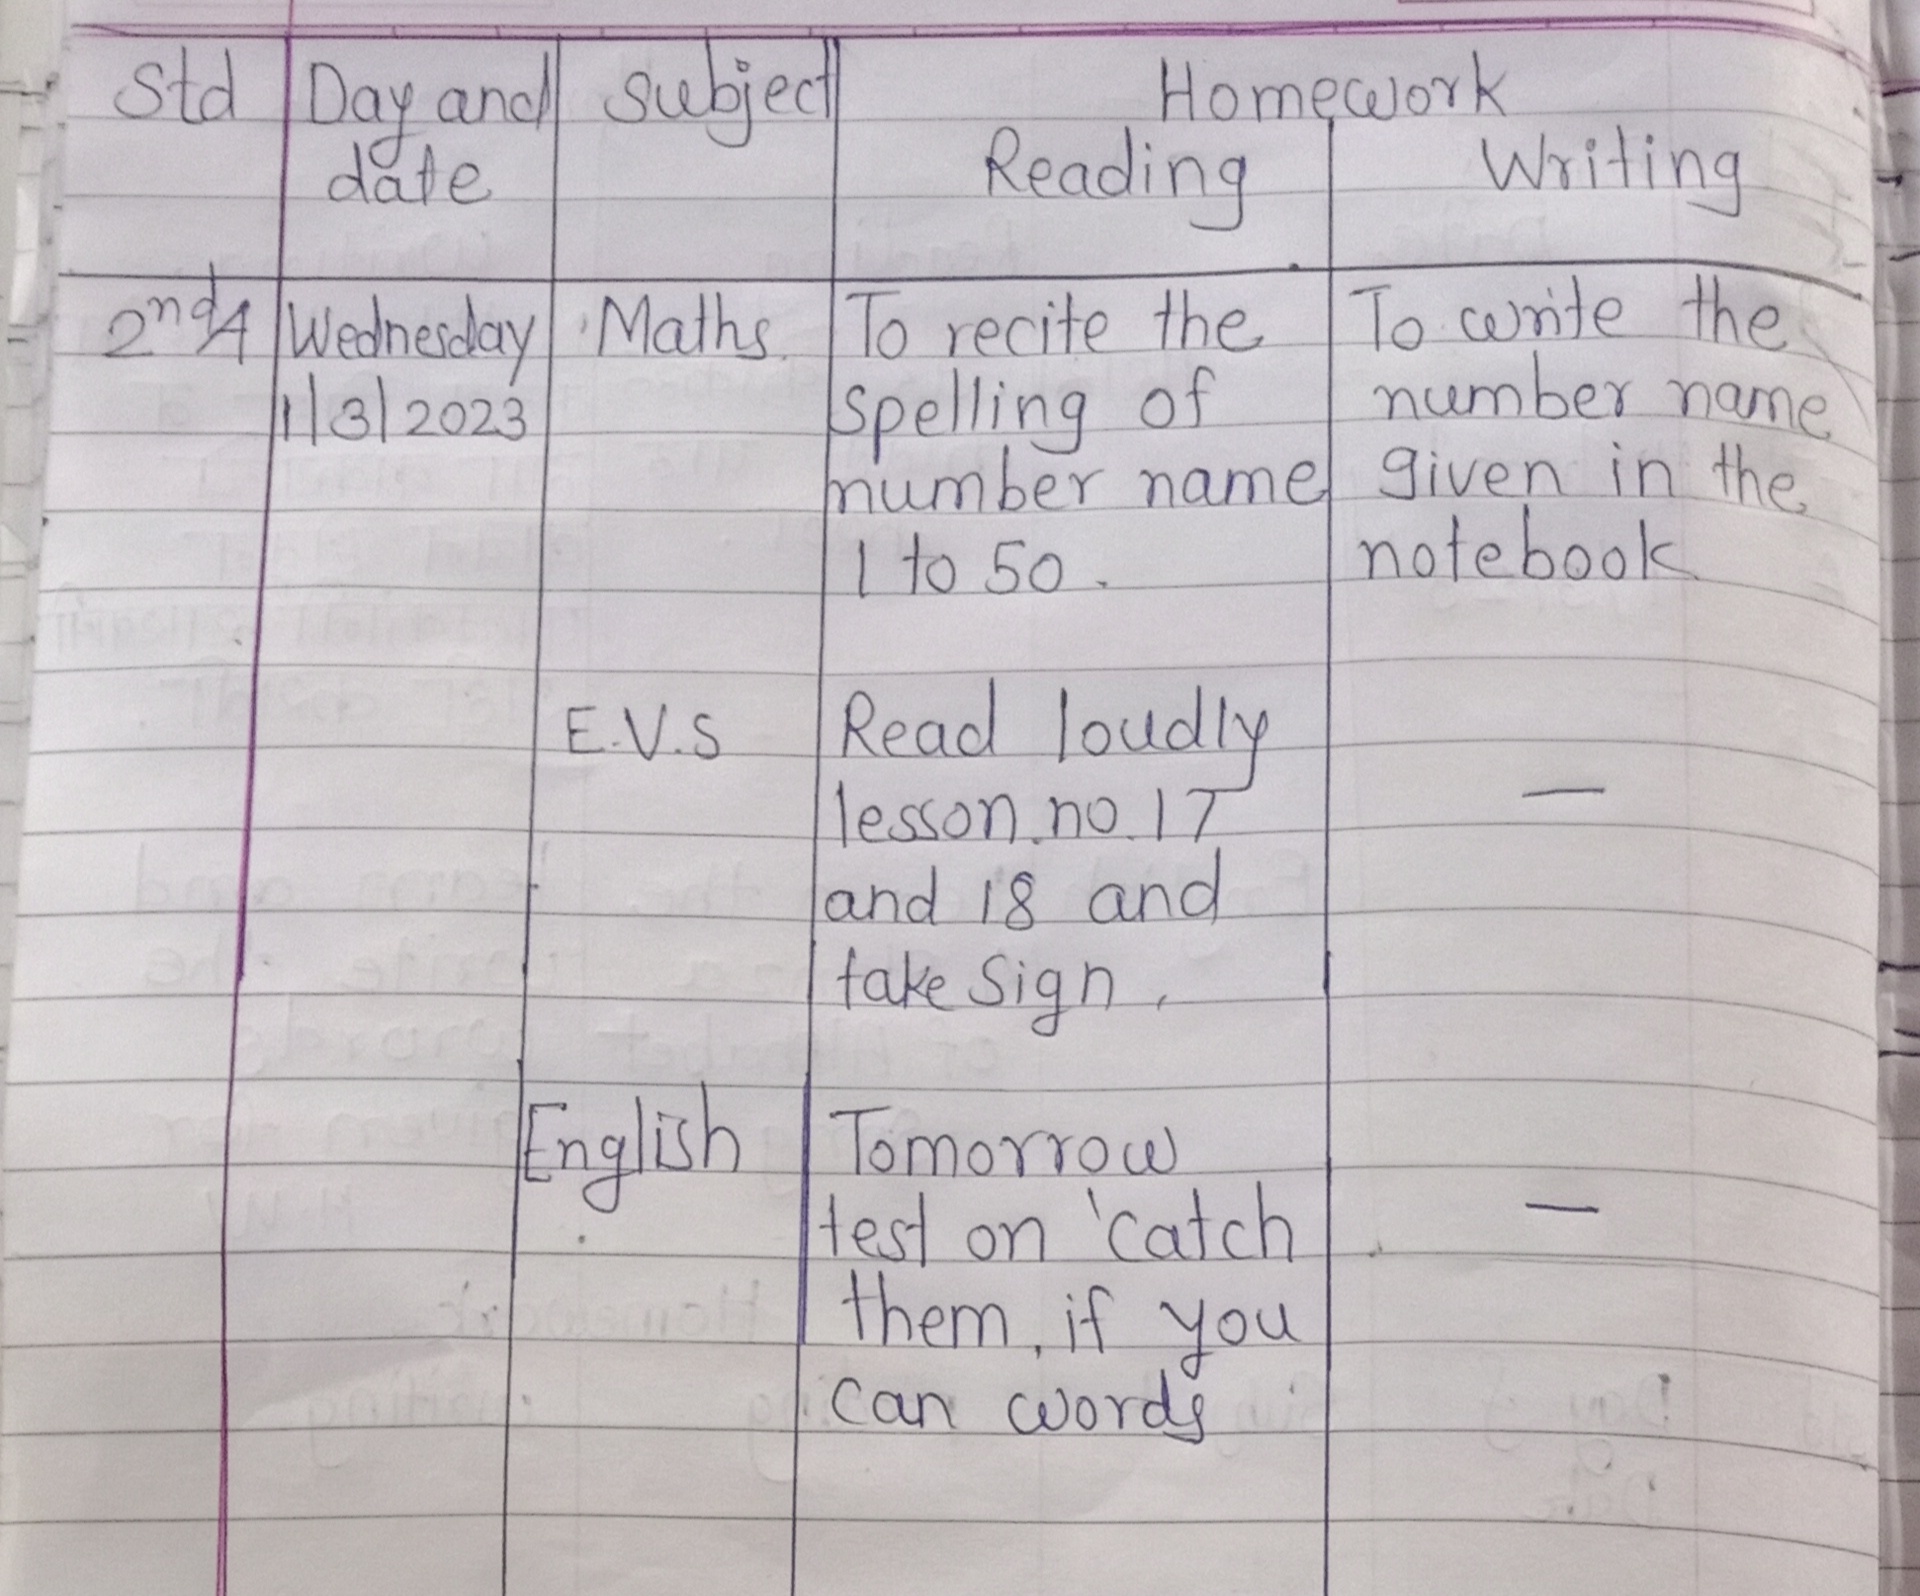 Std Day and Subject Homework
date Reading Writing
2nd A Wednesday Maths To recite the To write the
1/3/2023 spelling of number name
number name given in the
1 to 50. notebook
E.V.S Read loudly
lesson no. 17 —
and 18 and
take Sign.
English Tomorrow
test on 'catch —
them, if you
can words